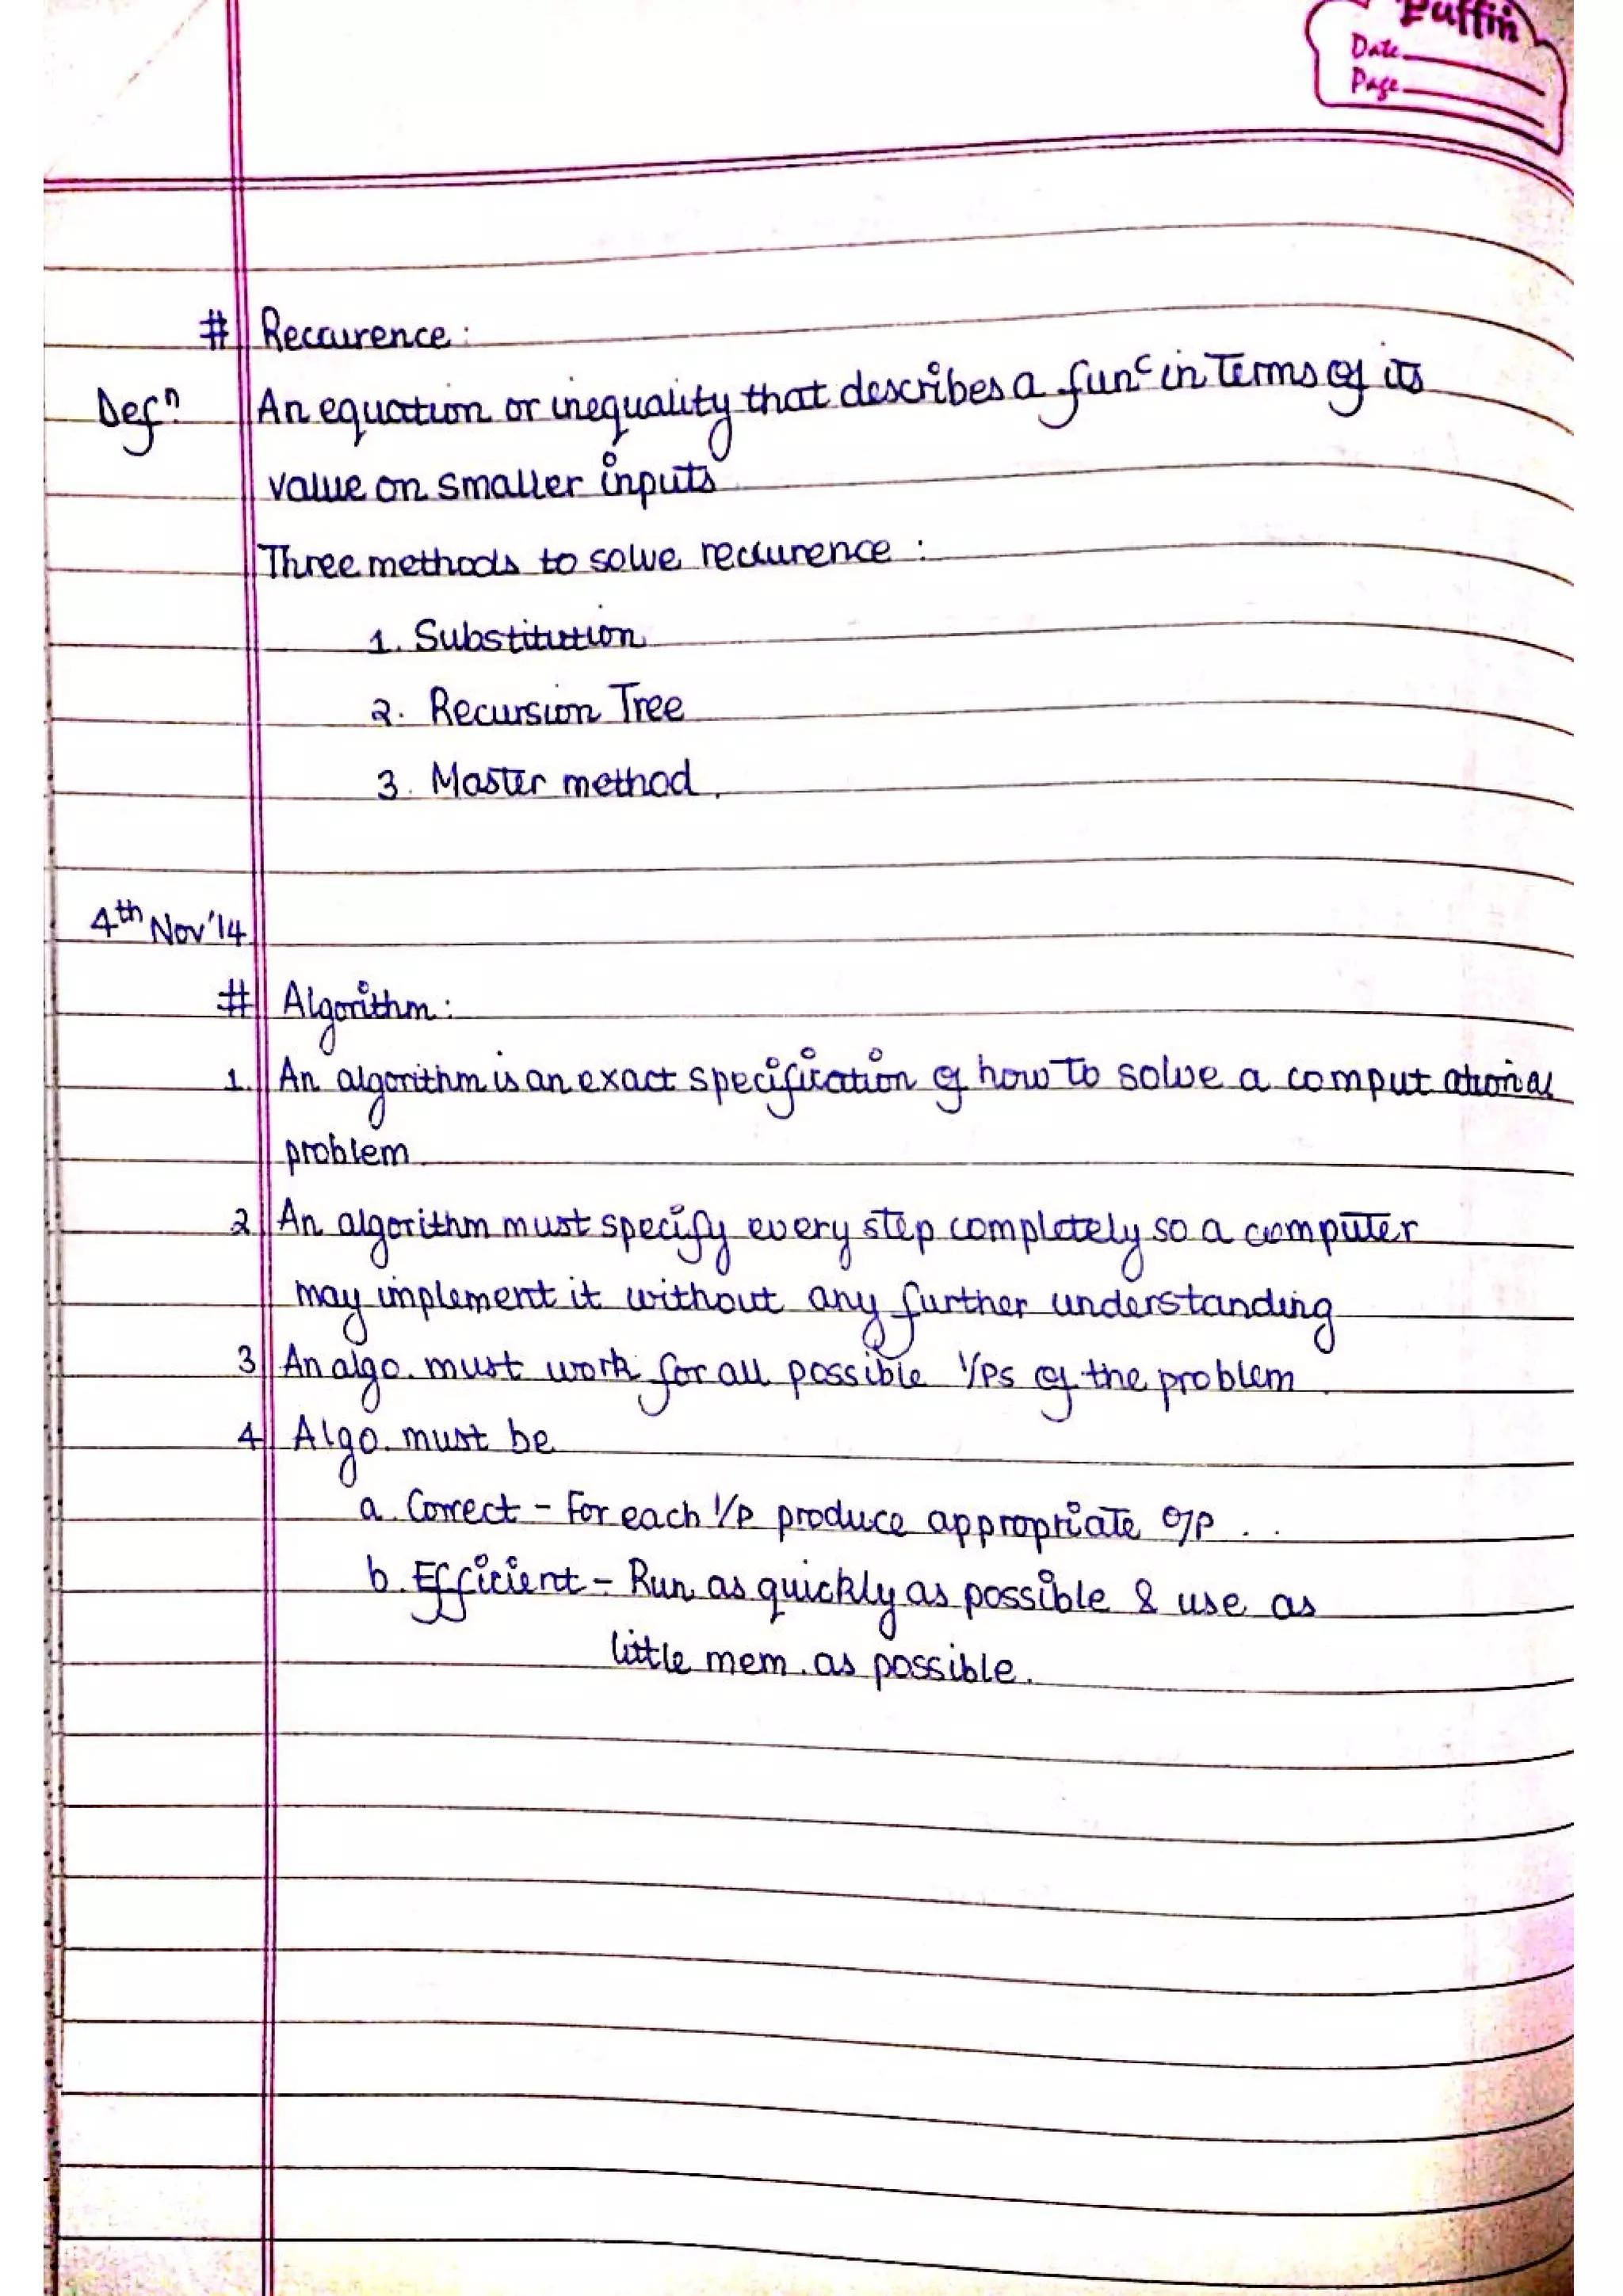 Puffin
Date
Page
# Reccurence:
Defⁿ An equation or inequality that describes a funᶜ in terms of its
value on smaller inputs
Three methods to solve reccurence :
1. Substitution
2. Recursion Tree
3. Master method.
4th Nov'14
# Algorithm:
1. An algorithm is an exact specification of how to solve a computational
problem.
2 An algorithm must specify every step completely so a computer
may implement it without any further understanding
3 An algo. must work for all possible I/Ps of the problem.
4 Algo. must be
a. Correct - For each I/P produce appropriate O/P . .
b. Efficient - Run as quickly as possible & use as
little mem. as possible.